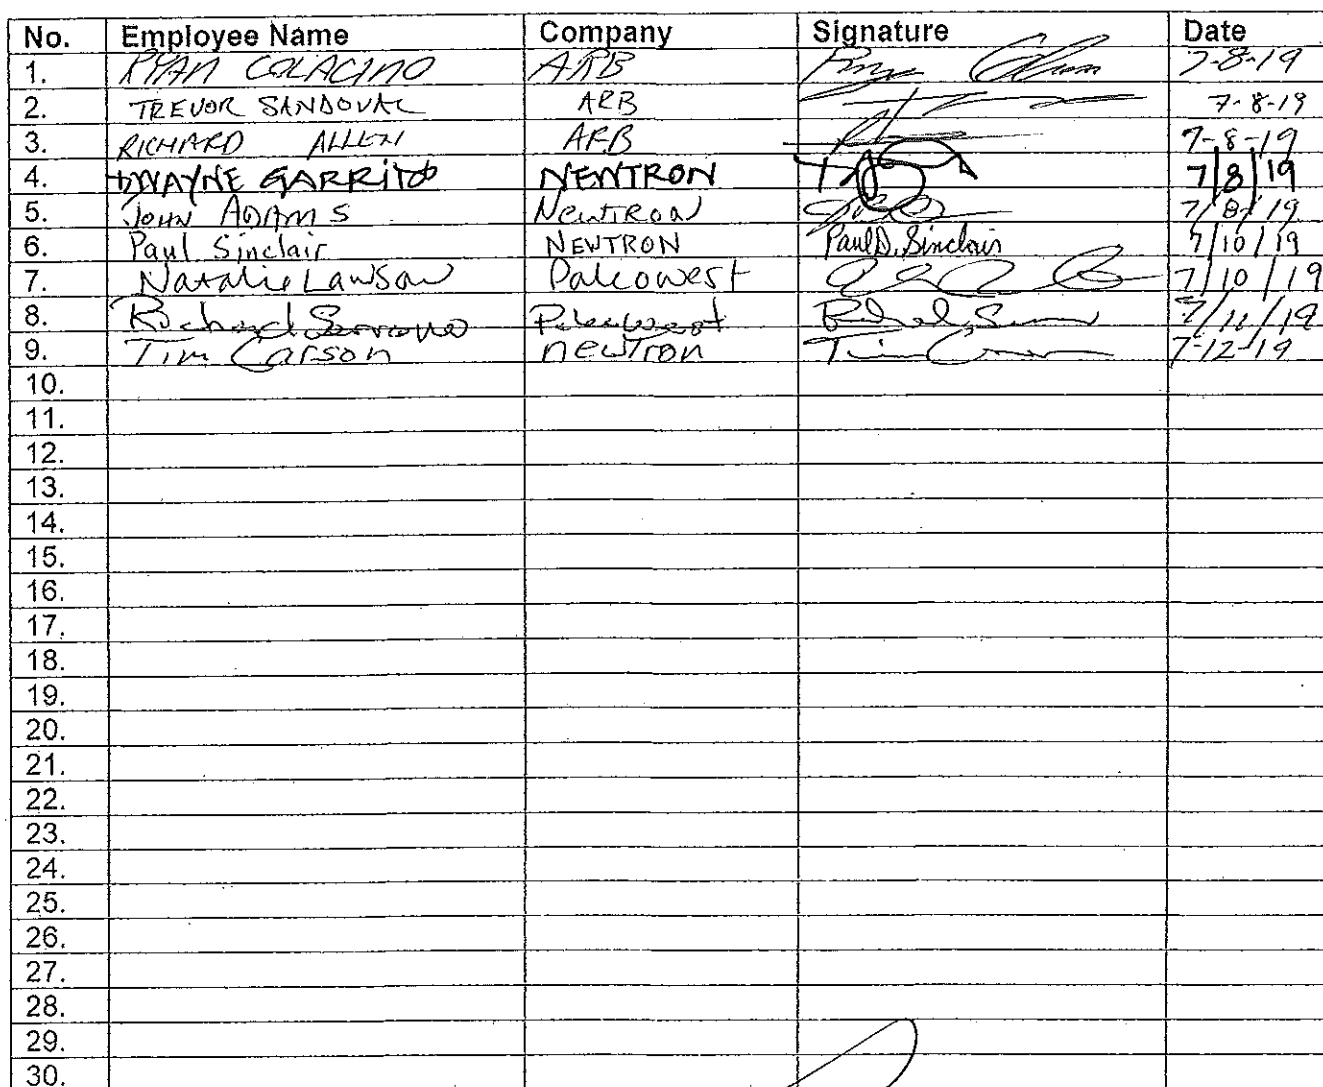 No. Employee Name Company Signature Date
1. RYAN COLACINO ARB 7-8-19
2. TREVOR SANDOVAL ARB 7-8-19
3. RICHARD ALLEN ARB 7-8-19
4. DWAYNE GARRITO NEWTRON 7/8/19
5. JOHN ADAMS NewTRON 7/8/19
6. Paul Sinclair NEWTRON Paul D. Sinclair 7/10/19
7. Natalie Lawson Palcowest 7/10/19
8. Richard Serrano Palcowest 7/11/19
9. Tim Carson newTron Tim 7-12-19
10.
11.
12.
13.
14.
15.
16.
17.
18.
19.
20.
21.
22.
23.
24.
25.
26.
27.
28.
29.
30.